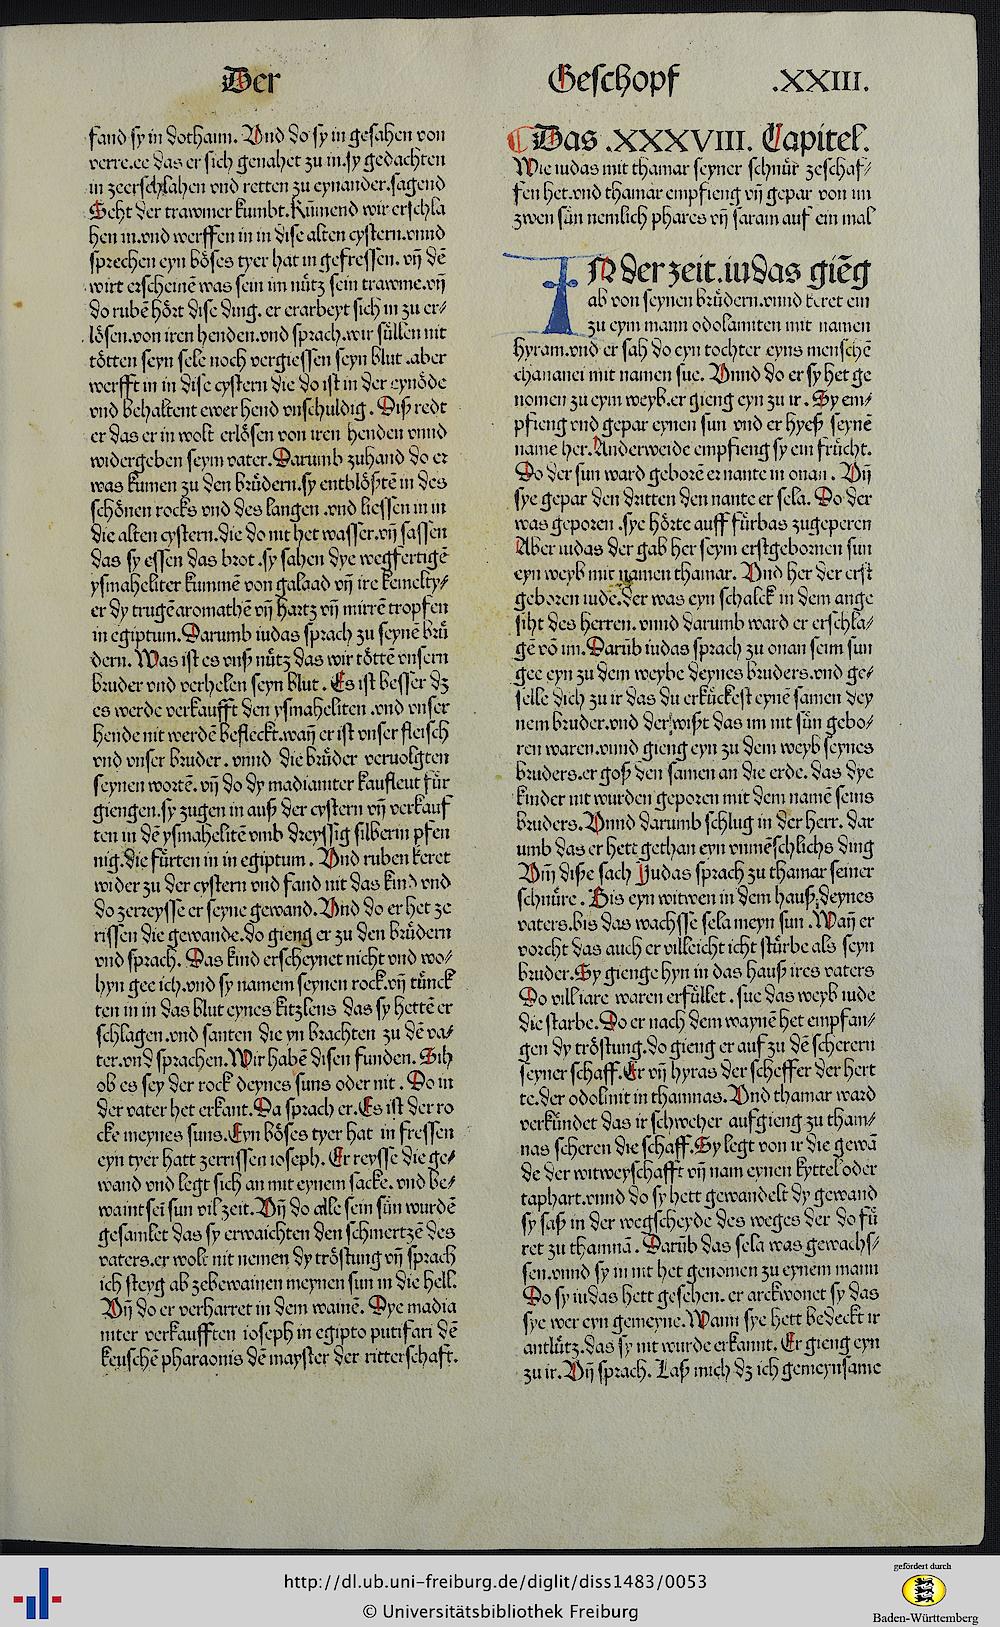 Der
Geschopf
.XXIII.
fand sy in dothaim. Vnd do sy in gesahen von
verre.ee das er sich genahet zu in.sy gedachten
in zeerschlahen vnd retten zu eynander.sagend
Seht der trawmer kumbt.Kument wir erschla
hen in.vnd werffen in in dise alten cystern.vnnd
sprechen eyn böses tyer hat in gefressen. vñ dē
wirt erscheinē was sein im nütz sein trawme.vñ
do rubē hört dise ding. er erarbeyt sich in zu er⸗
lösen.von iren henden.vnd sprach.wir süllen nit
tötten seyn sele noch vergiessen seyn blut .aber
werfft in in dise cystern die do ist in der eynöde
vnd behaltent ewer hend vnschuldig. Diß redt
er das er in wolt erlösen von iren henden vnnd
widergeben seym vater.Darumb zuhand do er
was kumen zu den brüdern.sy entblößtē in des
schönen rocks vnd des langen .vnd liessen in in
die alten cystern.die do nit het wasser.vñ sassen
das sy essen das brot .sy sahen dye wegfertigē
ysmaheliter kummē von galaad vñ ire kemelty⸗
er dy trugē aromathē vñ hartz vñ mirrē tropfen
in egiptum.Darumb iudas sprach zu seynē brü
dern. Was ist es vnß nütz das wir töttē vnsern
bruder vnd verhelen seyn blut. Es ist besser dz
es werde verkaufft den ysmaheliten .vnd vnser
hende nit werdē befleckt.wañ er ist vnser fleisch
vnd vnser bruder . vnnd die brüder veruolgten
seynen wortē. vñ do dy madianiter kaufleut für
giengen.sy zugen in auß der cystern vñ verkauf
ten in dē ysmahelitē vmb dreyssig silberin pfen
nig.die fürten in in egiptum . Vnd ruben keret
wider zu der cystern vnd fand nit das kind vnd
do zerreysse er seyne gewand.Vnd do er het ze
rissen die gewande.do gieng er zu den brüdern
vnd sprach. Das kind erscheynet nicht vnd wo⸗
hyn gee ich.vnd sy namem seynen rock.vñ tünck
ten in in das blut eynes kitzlens das sy hettē er
schlagen.vnd santen die yn brachten zu dē va⸗
ter.vnd sprachen.Wir habē disen funden. Sih
ob es sey der rock deynes suns oder nit . Do in
der vater het erkant.Da sprach er.Es ist der ro
cke meynes suns.Eyn böses tyer hat in fressen
eyn tyer hatt zerrissen ioseph. Er reysse die ge⸗
wand vnd legt sich an mit eynem sacke. vnd be⸗
waint sei sun vil zeit. Vñ do alle sein sün wurdē
gesamlet das sy erwaichten den schmertzē des
vaters.er wolt nit nemen dy tröstung vñ sprach
ich steyg ab zebewainen meynen sun in die hell.
Vñ do er verharret in dem wainē. Dye madia
niter verkaufften ioseph in egipto putifari dē
keuschē pharaonis dē mayster der ritterschaft.
Das .XXXVIII. Capitel.
Wie iudas mit thamar seyner schnür zeschaf⸗
fen het.vnd thamar empfieng vñ gepar von im
zwen sün nemlich phares vñ saram auf ein mal
IN der zeit.iudas giēg
ab von seynen brüdern.vnnd keret ein
zu eym mann odolamten mit namen
hyram.vnd er sah do eyn tochter eyns menschē
chananei mit namen sue. Vnnd do er sy het ge
nomen zu eym weyb.er gieng eyn zu ir . Sy em⸗
pfieng vnd gepar eynen sun vnd er hyeß seynē
name her.Anderweide empfieng sy ein frücht.
Do der sun ward geborē er nante in onan . Vñ
sye gepar den dritten den nante er sela. Do der
was geporen .sye hörte auff fürbas zugeperen
Aber iudas der gab her seym erstgebornen sun
eyn weyb mit namen thamar. Vnd her der erst
geboren iude.der was eyn schalck in dem ange
siht des herren. vnnd darumb ward er erschla⸗
gē vō im. Darūb iudas sprach zu onan seim sun
gee eyn zu dem weybe deynes bruders.vnd ge⸗
selle dich zu ir das du erkückest eynē samen dey
nem bruder.vnd der wißt das im nit sün gebo⸗
ren waren.vnnd gieng eyn zu dem weyb seynes
bruders.er goß den samen an die erde. das dye
kinder nit wurden geporen mit dem namē seins
bruders. Vnnd darumb schlug in der herr. dar
umb das er hett gethan eyn vnmēschlichs ding
Vñ diße sach Judas sprach zu thamar seiner
schnüre . Bis eyn witwen in dem hauß deynes
vaters.bis das wachsse sela meyn sun .Wañ er
vorcht das auch er villeicht icht stürbe als seyn
bruder.Sy gienge hyn in das hauß ires vaters
Do vill iare waren erfüllet . sue das weyb iude
die starbe.Do er nach dem waynē het empfan⸗
gen dy tröstung.do gieng er auf zu dē scherern
seyner schaff.Er vñ hyras der scheffer der hert
te.der odolinit in thamnas. Vnd thamar ward
verkündet das ir schweher aufgieng zu tham⸗
nas scheren die schaff.Sy legt von ir die gewā
de der witweyschafft vñ nam eynen kyttel oder
taphart.vnnd do sy hett gewandelt dy gewand
sy saß in der wegscheyde des weges der do fü
ret zu thamnā. Darūb das sela was gewachs⸗
sen.vnnd sy in nit het genomen zu eynem mann
Do sy iudas hett gesehen. er arckwonet sy das
sye wer eyn gemeyne.Wann sye hett bedeckt ir
antlütz.das sy nit wurde erkannt. Er gieng eyn
zu ir. Vñ sprach. Laß mich dz ich gemeynsame
http://dl.ub.uni-freiburg.de/diglit/diss1483/0053
© Universitätsbibliothek Freiburg
gefördert durch
Baden-Württemberg